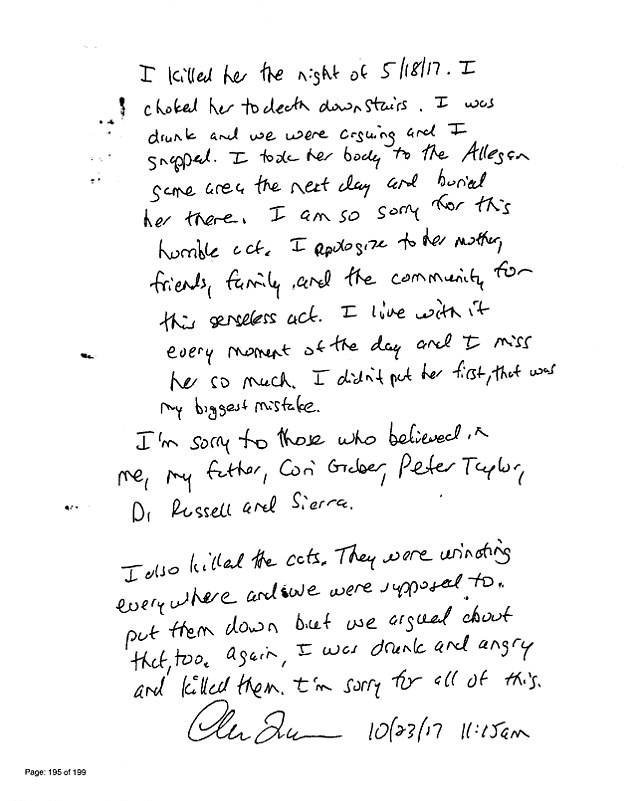 I killed her the night of 5/18/17. I
choked her to death downstairs. I was
drunk and we were arguing and I
snapped. I took her body to the Allegan
game area the next day and buried
her there. I am so sorry for this
horrible act. I apologize to her mother,
friends, family, and the community for
this senseless act. I live with it
every moment of the day and I miss
her so much. I didn't put her first, that was
my biggest mistake.
I'm sorry to those who believed in
me, my father, Cori Graber, Peter Taylor,
Di Russell and Sierra.
I also killed the cats. They were urinating
everywhere and we were supposed to
put them down but we argued about
that, too. Again, I was drunk and angry
and killed them. I'm sorry for all of this.
10/23/17 11:15am
Page: 195 of 199